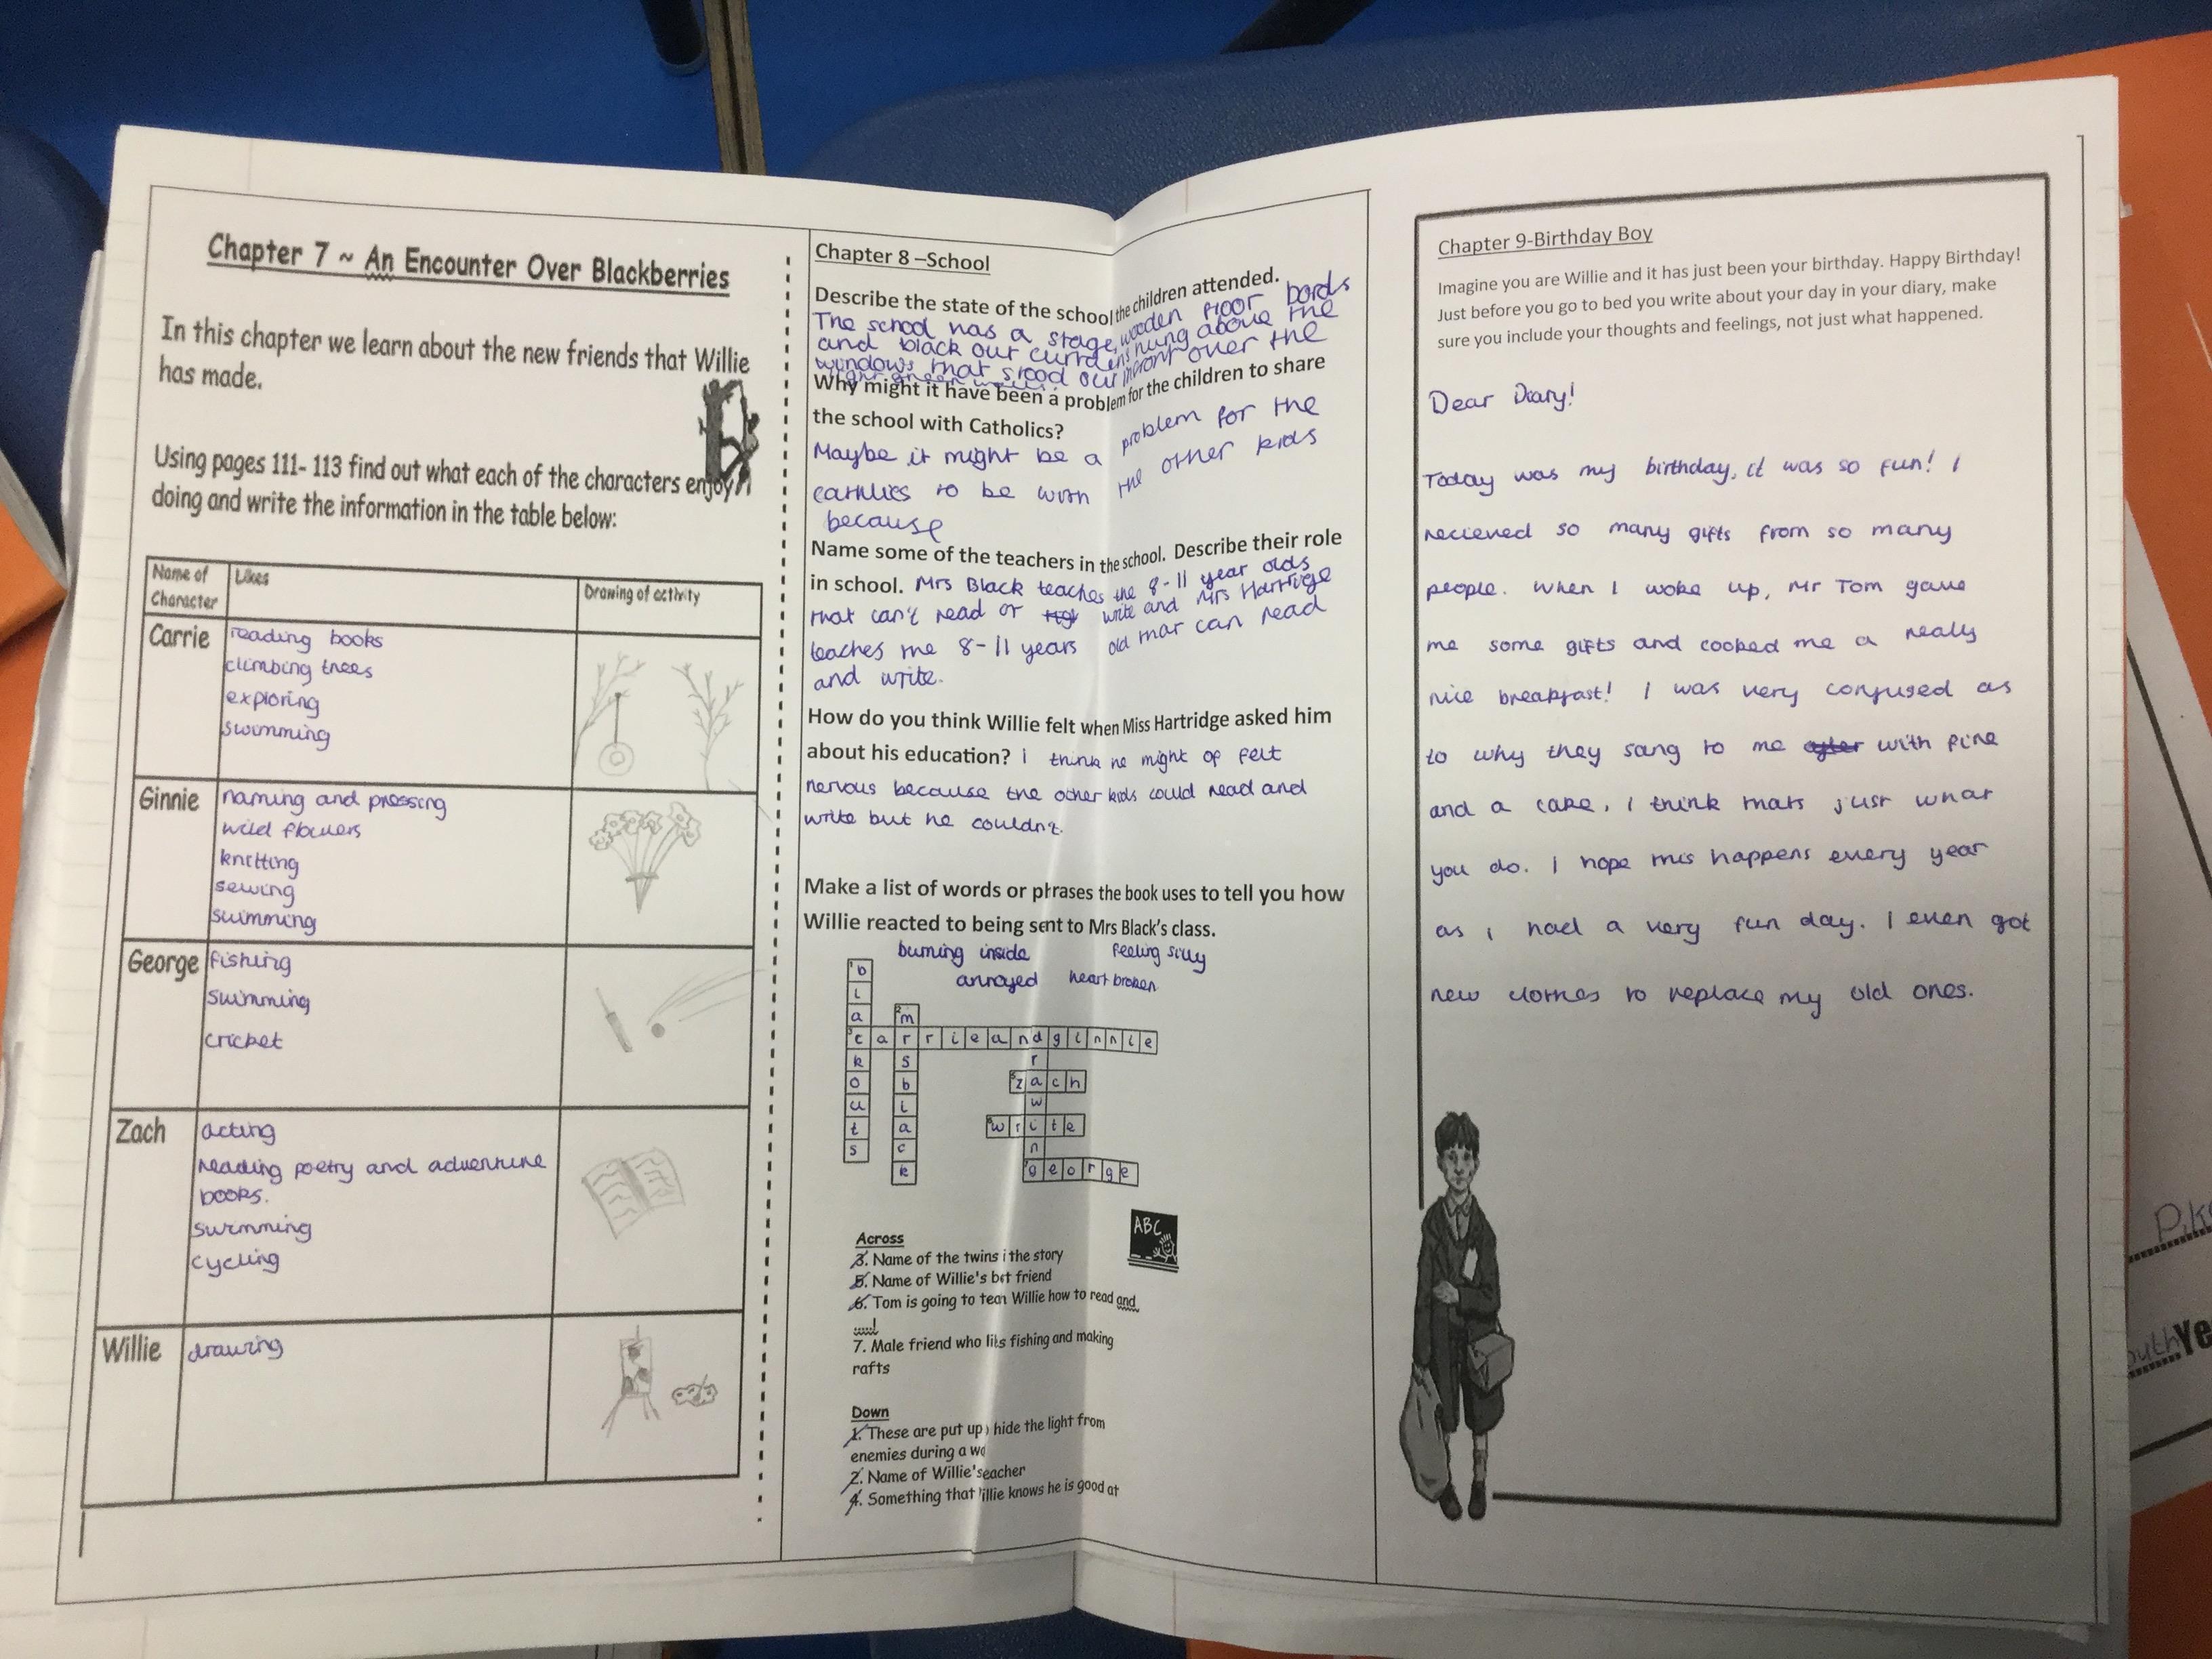 Chapter 7 ~ An Encounter Over Blackberries
In this chapter we learn about the new friends that Willie
has made.
Using pages 111- 113 find out what each of the characters enjoy
doing and write the information in the table below:
Name of Character
Likes
Drawing of activity
Carrie
reading books
climbing trees
exploring
swimming
Ginnie
naming and pressing
wild flowers
knitting
sewing
swimming
George
fishing
swimming
cricket
Zach
acting
reading poetry and adventure
books.
swimming
cycling
Willie
drawing
Chapter 8 –School
Describe the state of the school the children attended.
The school has a stage, wooden floor bords
and black out curtens hung above the
windows that stood out infront over the
light green
Why might it have been a problem for the children to share
the school with Catholics?
Maybe it might be a problem for the
cathlics to be with the other kids
because
Name some of the teachers in the school. Describe their role
in school. Mrs Black teaches the 8-11 year olds
that can't read or write and Mrs Hartrige
teaches the 8-11 years old that can read
and write.
How do you think Willie felt when Miss Hartridge asked him
about his education? I think he might of felt
nervous because the other kids could read and
write but he couldn't.
Make a list of words or phrases the book uses to tell you how
Willie reacted to being sent to Mrs Black's class.
burning inside feeling silly
annoyed heart broken
1b
l
a
2m
3carrieandginnie
k s r
o b 5zach
u l w
t a 6write
s c n
k 7george
ABC
Across
3. Name of the twins i the story
5. Name of Willie's bet friend
6. Tom is going to teah Willie how to read and
7. Male friend who lits fishing and making
rafts
Down
1. These are put up hide the light from
enemies during a wa
2. Name of Willie'seacher
4. Something that illie knows he is good at
Chapter 9-Birthday Boy
Imagine you are Willie and it has just been your birthday. Happy Birthday!
Just before you go to bed you write about your day in your diary, make
sure you include your thoughts and feelings, not just what happened.
Dear Diary!
Today was my birthday, it was so fun! I
recieved so many gifts from so many
people. When I woke up, Mr Tom gave
me some gifts and cooked me a really
nice breakfast! I was very confused as
to why they sang to me after with fire
and a cake, I think thats just what
you do. I hope this happens every year
as I had a very fun day. I even got
new clothes to replace my old ones.
Ye